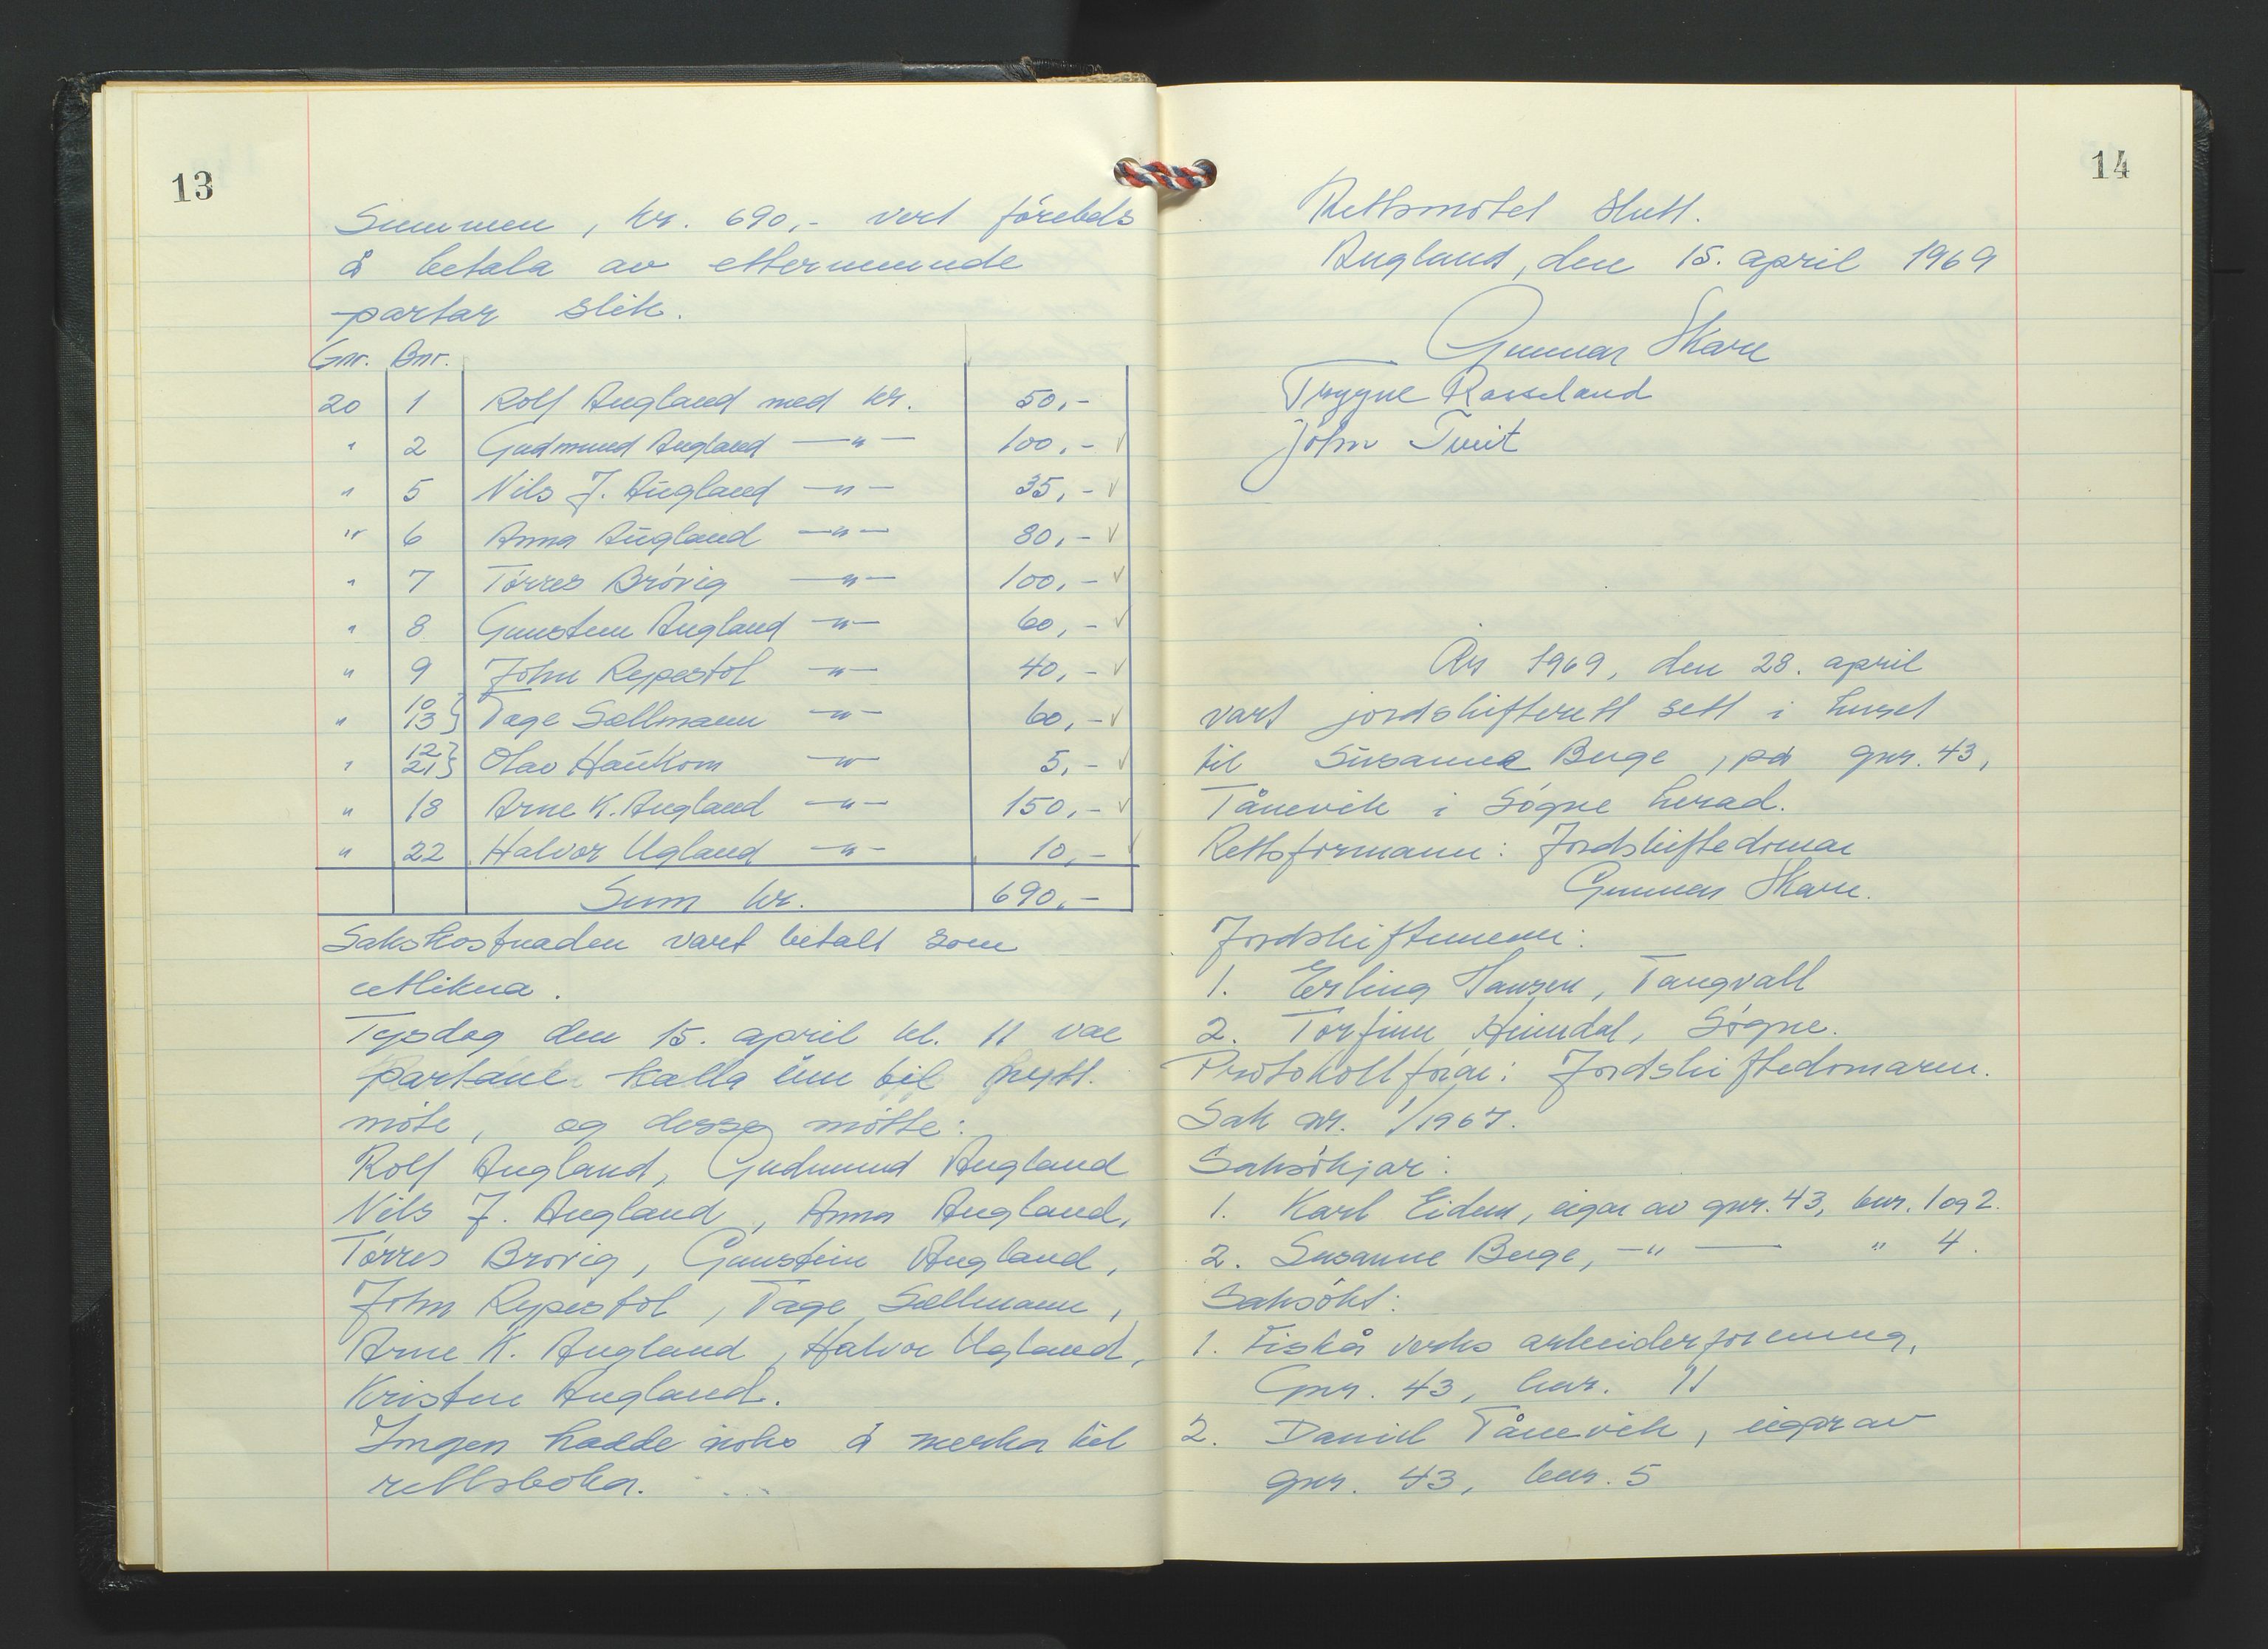 13
Summen, kr. 690,- vert förebels
å betala av etternemnde
partar slik.
Gnr. Bnr.
20 1 Rolf Augland med kr. 50,-
" 2 Gudmund Augland —"— 100,- ✓
" 5 Nils J. Augland —"— 35,- ✓
" 6 Anna Augland —"— 80,- ✓
" 7 Tørres Brøvig —"— 100,- ✓
" 8 Gunstein Augland —"— 60,- ✓
" 9 John Repestøl —"— 40,- ✓
" 10 13} Tage Sællmann —"— 60,- ✓
" 12 21} Olav Haukom —"— 5,- ✓
" 18 Arne K. Augland —"— 150,- ✓
" 22 Halvor Ugland —"— 10,- ✓
Sum kr. 690,-
Sakskostnaden vart betalt som
utlikna.
Tysdag den 15. april kl. 11 var
partane kalla inn til nytt
møte, og desse møtte:
Rolf Augland, Gudmund Augland
Nils J. Augland, Anna Augland,
Tørres Brøvig, Gunstein Augland,
John Repestøl, Tage Sællmann,
Arne K. Augland, Halvor Ugland,
Kristen Augland.
Ingen hadde noko å merka til
rettsboka.
14
Rettsmøtet slutt.
Augland, den 15. april 1969
Gunnar Skare
Trygve Rosseland
John Tveit
År 1969, den 28. april
vart jordskifterett sett i huset
til Susanne Berge, på gnr. 43,
Tånevik i Søgne herad.
Rettsformann: Jordskiftedomar
Gunnar Skare.
Jordskiftemenn:
1. Erling Hansen, Tangvall
2. Torfinn Heimdal, Søgne.
Protokollførar: Jordskiftedomaren.
Sak nr. 1/1967.
Saksøkjar:
1. Karl Eidem, eigar av gnr. 43, bnr. 1 og 2.
2. Susanne Berge, —"— " 4.
Saksøkt:
1. Fiskå verks arbeiderforening,
Gnr. 43, bnr. 11
2. Daniel Tånevik, eigar av
gnr. 43, bnr. 5